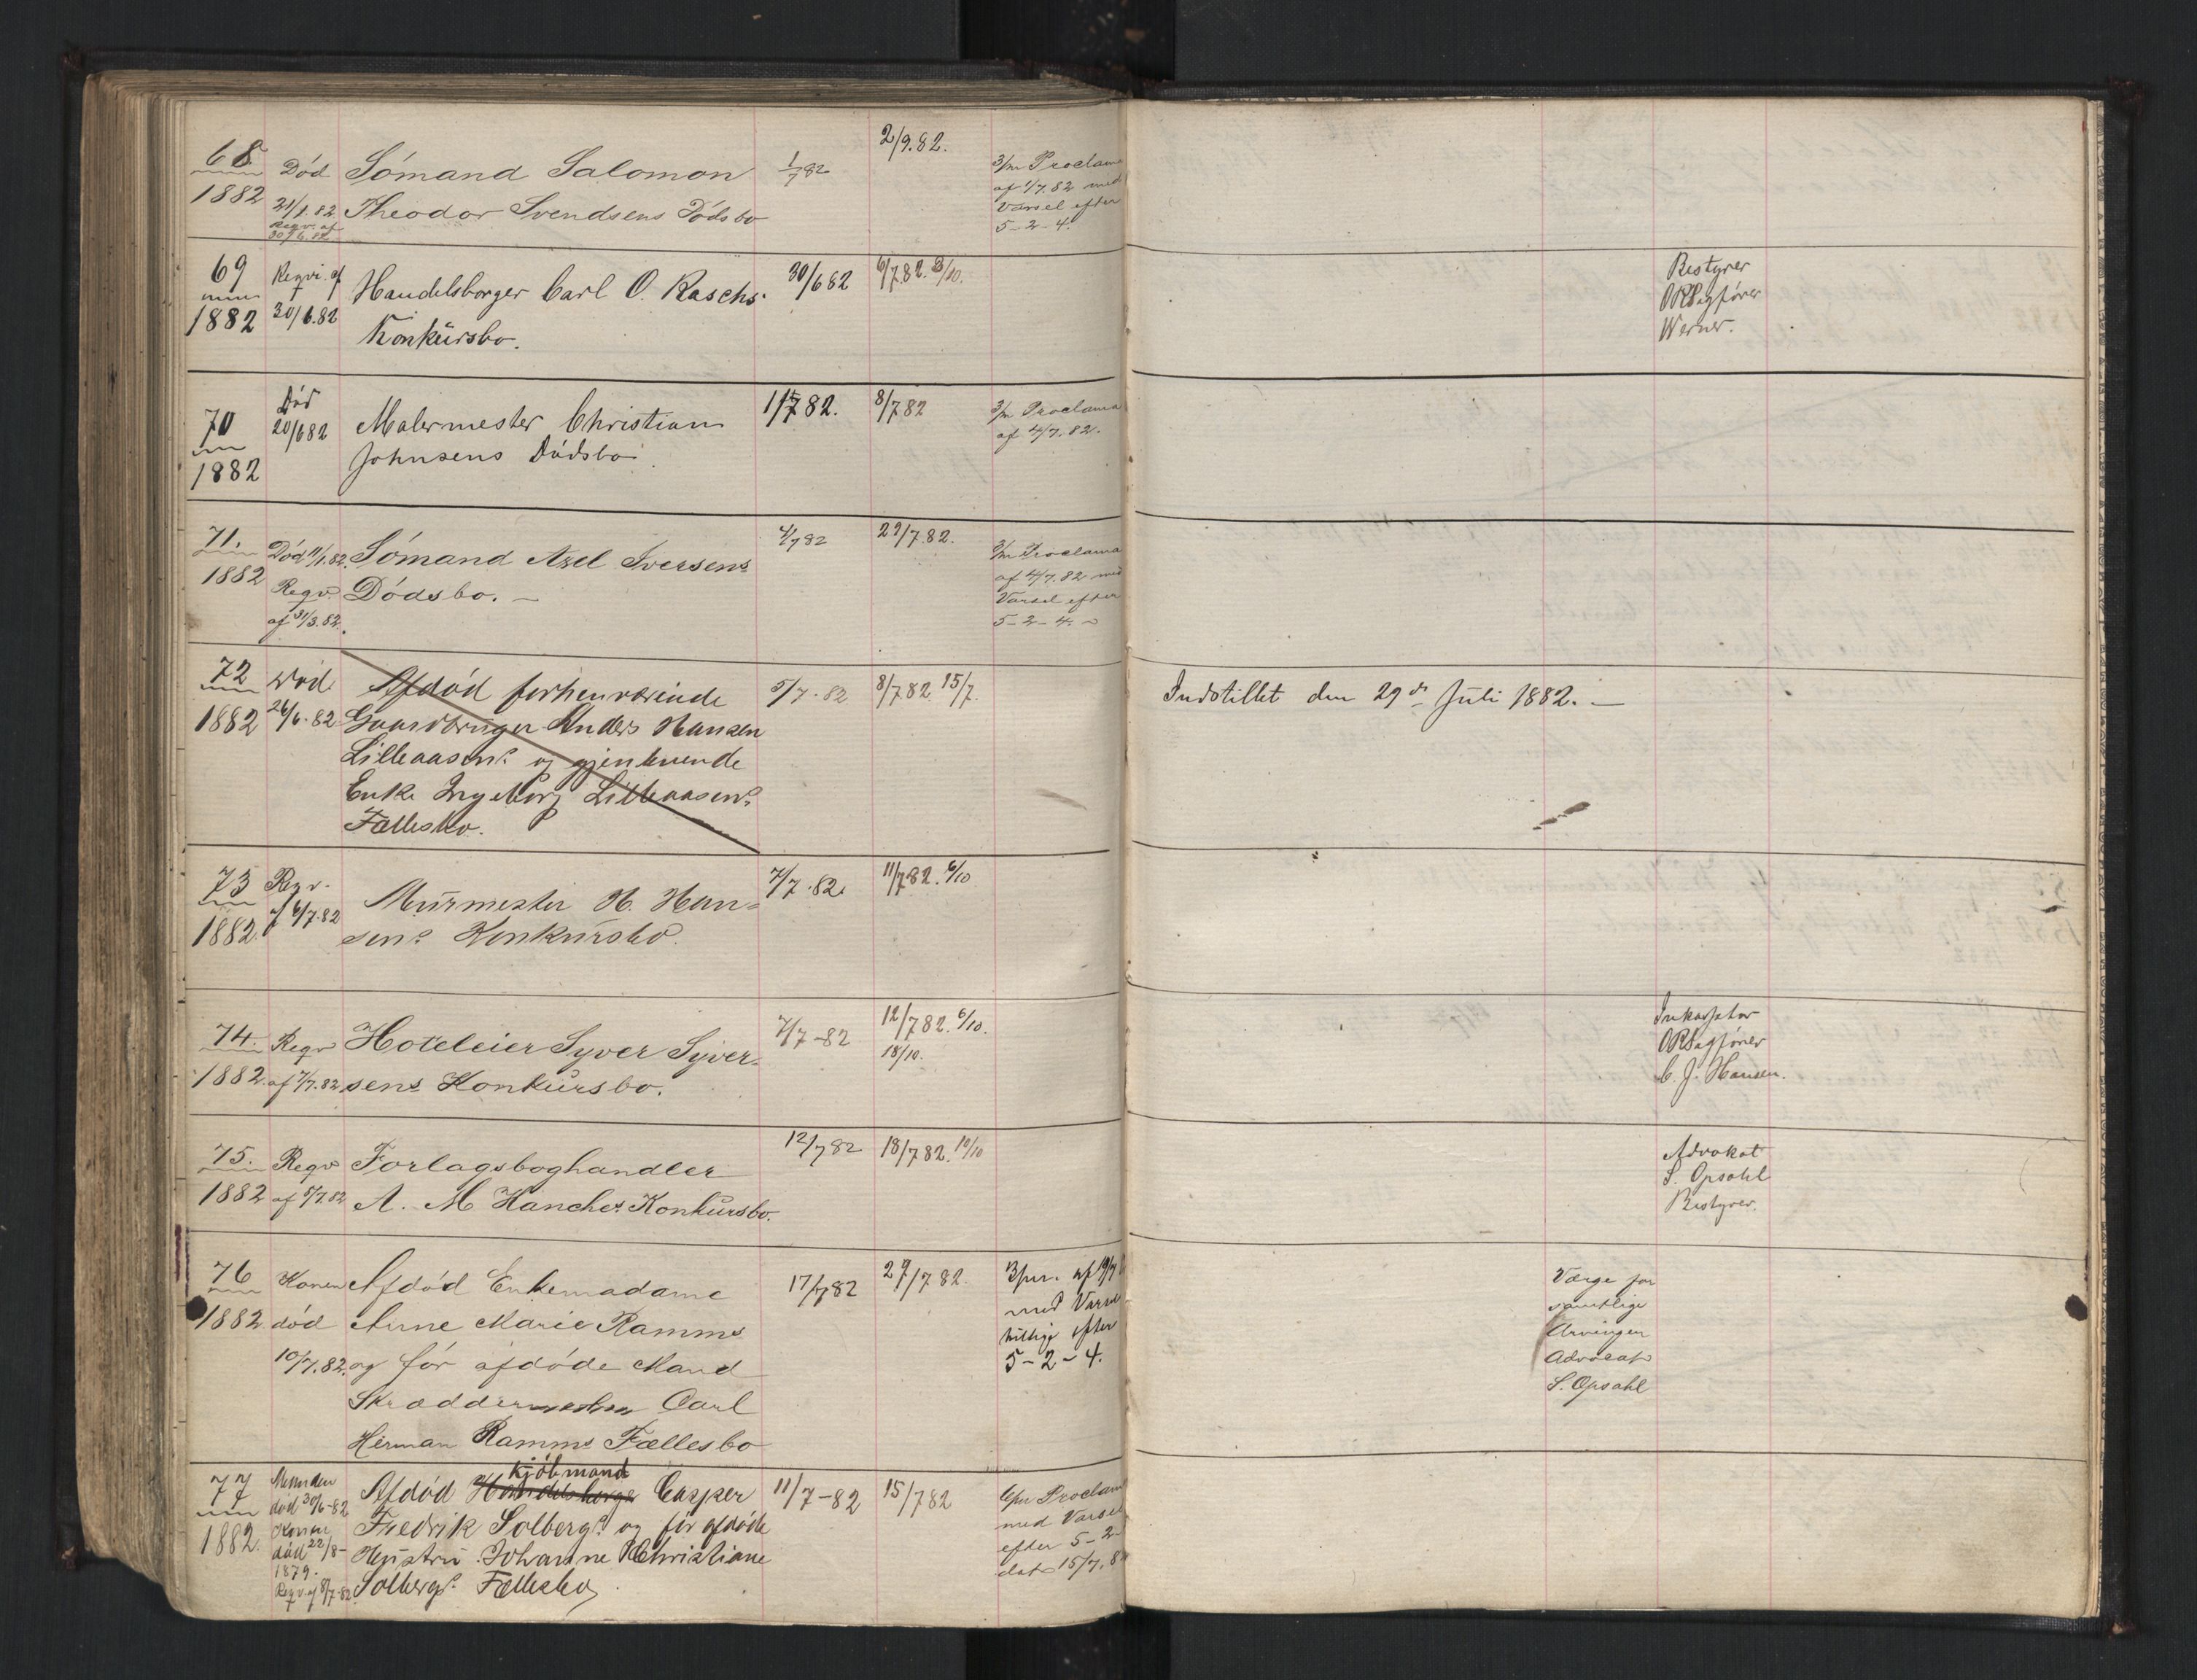 68
1882
Död
21/1.82
Reqv. af
30/6.82
Sómand Salomon
Theodor Svendsens Dódsbo
1/7 82
2/9.82.
3/m Proclama
af 1/7.82 med
Varsel efter
5-2-4.
69
1882
Reqvi. af
30/6.82
Handelsborger Carl O. Raschs
Konkürsbo.
30/6 82
6/7.82. 3/10.
Bestyrer
ORSagfører
Werner.
70
1882
Död
20/6 82
Malermester Christian
Johnsens Dódsbo
1/7 82.
8/7 82
3/m Proclama
af 4/7.82.
71.
1882
Död 11/1.82.
Reqv.
af 31/3.82.
Sómand Axel Iversens
Dódsbo. —
4/7 82
29/7.82.
3/m Proclama
af 4/7.82 med
Varsel efter
5-2-4.
72
1882
Död
26/6.82
Afdód forhenværende
Gaardbrüger Anders Hansen
Lilleaasens og gjenlevende
Enke Ingeborg Lilleaasens
Fællesbo.
5/7.82
8/7 82 15/7.
Indstillet den 29de Jüli 1882. —
73
1882.
Reqv.
af 6/7.82
Mürmester H. Han=
sens Konkürsbo.
7/7.82.
11/7 82. 6/10
74.
1882.
Reqv
af 7/7.82
Hoteleier Syver Syver=
sens Konkürsbo.
7/7-82
12/7 82. 6/10.
18/10.
Inkassator
ORSagfører
C. J. Hansen.
75.
1882
Reqv
af 5/7.82
Forlagsboghandler
A. M Hanches Konkürsbo.
12/7 82
18/7 82. 10/10
Advokat
S. Opsahl
Bestyrer.
76
1882
Konen
död
10/7.82.
Afdód Enkemadame
Anne Marie Ramms
og fór afdóde Mand
Skræddermester Carl
Herman Ramms Fællesbo
17/7 82
29/7 82.
3/m. af 19/7
med Varsel
tillige efter
5-2-4.
Værge for
samtlige
Arvinger
Advocat
S. Opsahl
77
1882.
Manden
död 30/6-82
Konen
död 22/8-
1879.
Reqv. af 8/7-82.
Kjöbmand
Afdód Handelsborger Casper
Fredrik Solbergs og för afdöde
Hüstrü Johanne Christiane
Solbergs Fællesbo
11/7-82
15/7 82
6/m Proclam
med Varsel
efter 5-2-
dat 15/7.8